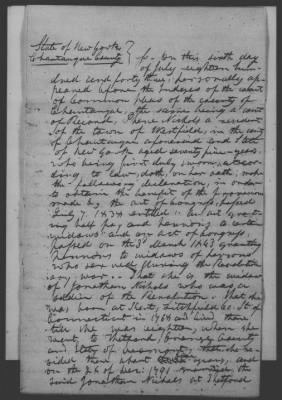 State of New York }
Chautauque County } ss. On this sixth day
of July eighteen hun-
dred and forty three, personally ap-
peared before the Judges of the court
of Common Pleas of the county of
Chautauque, the same being a court
of Record, Nichols a resident
of the town of Westfield, in the county
of Chautauque aforesaid and State
of New York aged seventy years,
who being first duly sworn, accor-
ding to law, doth, on her oath, make
the following declaration, in order
to obtain the benefit of the provision
made by the act of congress, passed
July 7. 1838 entitled "An act grant-
ing half pay and pensions to certain
widows" and act of congress,
passed on the 3d March 1843 granting
pensions to widows of persons
who served during the Revolution-
ary war. That she is the widow
of Jonathan Nichols who was a
soldier of the Revolution. That she
was born at Kent, Litchfield Co.
Connecticut in and lived there
till she was eighteen, when she
went to Thetford, Orange County
and State of Vermont, that she re-
sided there about years, and
on the of Dec. 1791 married the
said Jonathan Nichols at Thetford